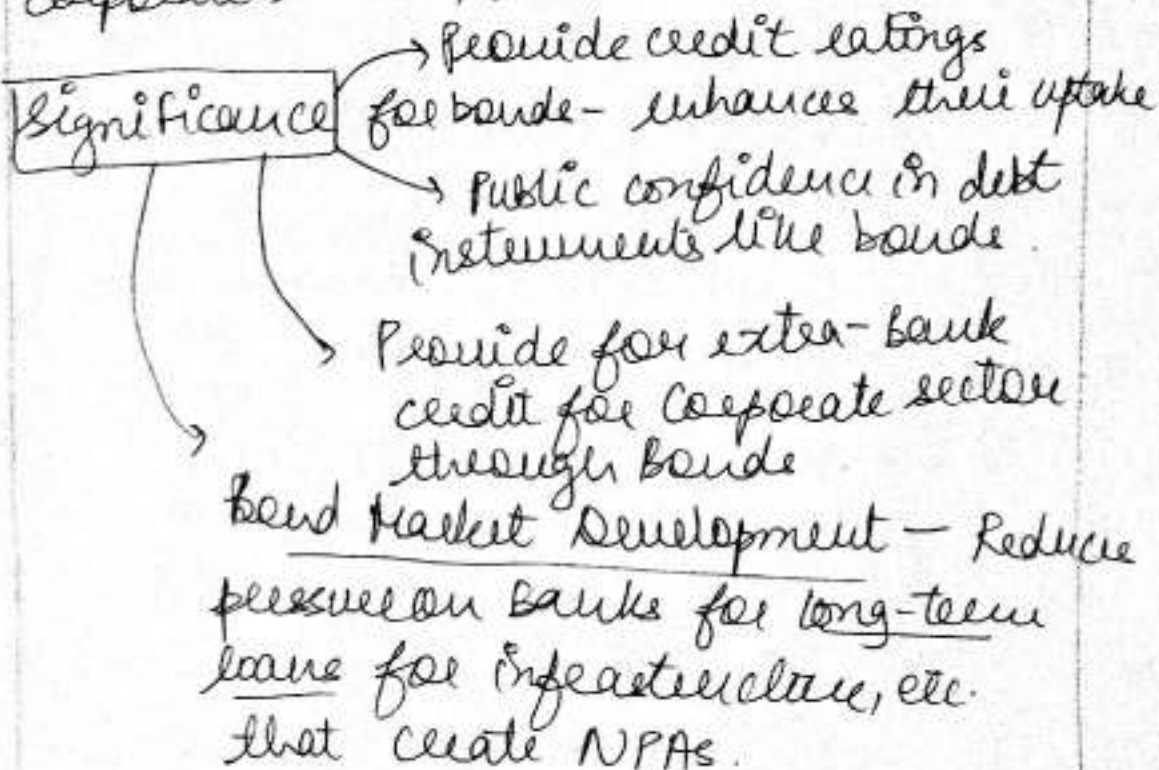 Significance
Provide credit ratings
for bonds - enhances their uptake
Public confidence in debt
instruments like bonds.
Provide for extra-Bank
credit for Corporate sector
through Bonds
Bond Market Development - Reduce
pressure on Banks for long-term
loans for infrastructure, etc.
that create NPAs.